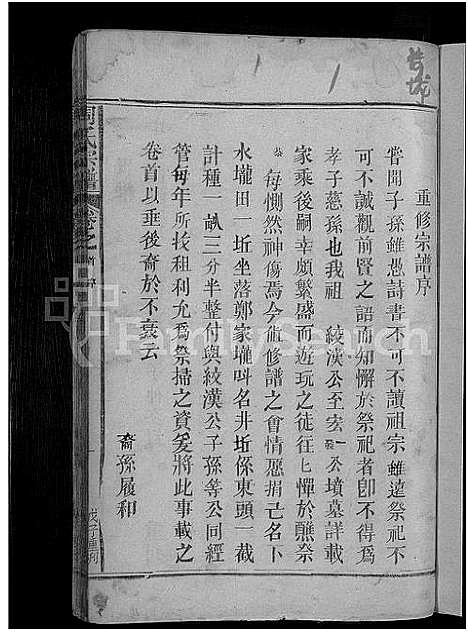 重修宗譜序
嘗聞子孫雖愚詩書不可不讀祖宗雖遠祭祀不
可不誠觀前賢之語而知懈於祭祀者卽不得爲
孝子慈孫也我祖 紋漢公至宏一公墳墓詳載
家乘後嗣幸頗繁盛而遊玩之徒往往憚於醮祭
每惻然神傷焉今前修譜之會情愿捐己名下
水壠田一坵坐落鄭家壠呌名井坵係東頭一截
計種一畝三分半整付與紋漢公子孫等公同經
管每年所找租利允爲祭掃之資爰將此事載之
卷首以垂後裔於不袞云
裔孫履和
周氏宗譜 卷之首
戊子重刊
FamilySearch